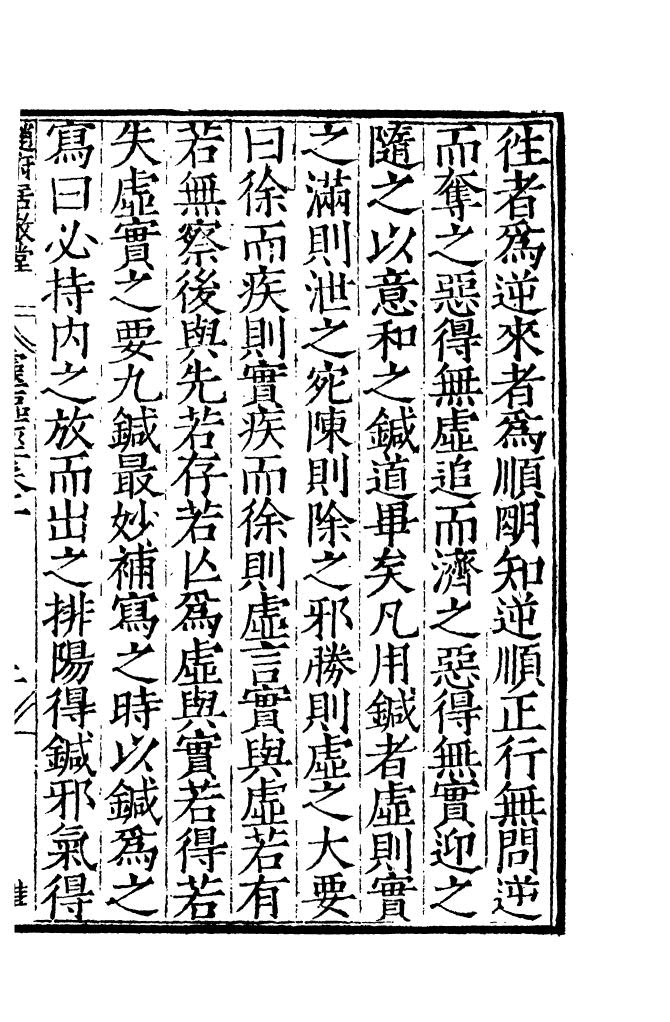 徃者爲逆來者爲順明知逆順正行無問逆
而奪之惡得無虛追而濟之惡得無實迎之
隨之以意和之鍼道畢矣凡用鍼者虛則實
之滿則泄之宛陳則除之邪勝則虛之大要
曰徐而疾則實疾而徐則虛言實與虛若有
若無察後與先若存若亾爲虛與實若得若
失虛實之要九鍼最妙補寫之時以鍼爲之
寫曰必持内之放而出之排陽得鍼邪氣得
趙府居敬堂